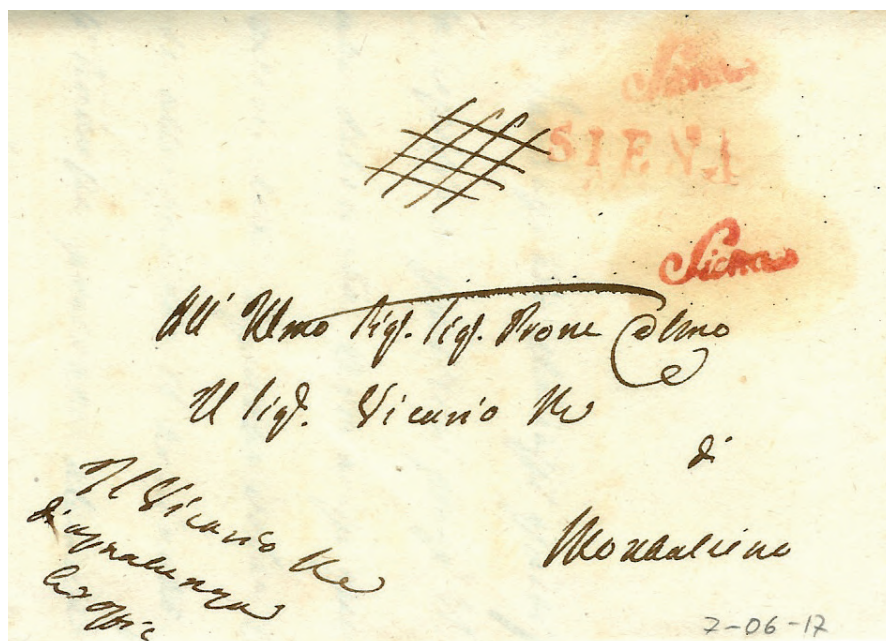 Siena
SIENA
Siena
All' Illmo Sigr. Sigr. Prone Colmo
Il Sigr. Vicario Re
di
Montalcino
Il Vicario Re
di
7-06-17